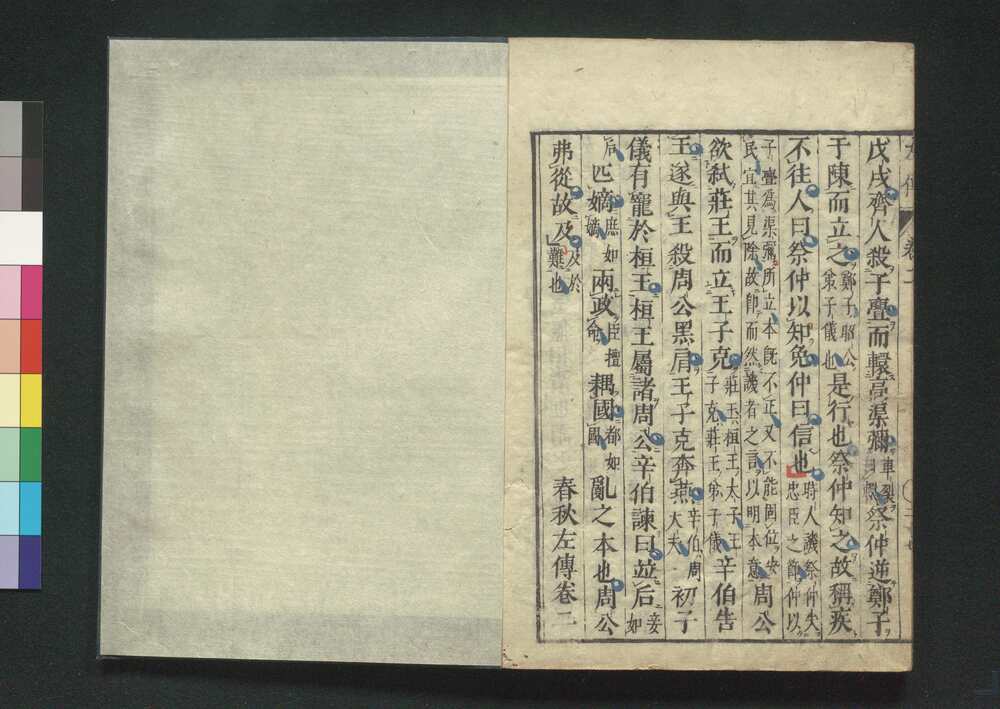 戊戌齊人殺子亹而轘高渠彌車裂曰轘祭仲逆鄭子
于陳而立之鄭子昭公弟子儀也是行也祭仲知之故稱疾
不往人曰祭仲以知免仲曰信也時人譏祭仲失忠臣之節仲以
子亹為渠彌所立本既不正又不能固位安民宜其見除故即而然譏者之言以明本意周公
欲弒莊王而立王子克莊王桓王太子王子克莊王弟子儀辛伯告
王遂與王殺周公黑肩王子克奔燕辛伯周大夫初子
儀有寵於桓王桓王屬諸周公辛伯諫曰並后妾如
后匹嫡庶如嫡兩政臣擅命耦國都如國亂之本也周公
弗從故及及於難也春秋左傳卷二